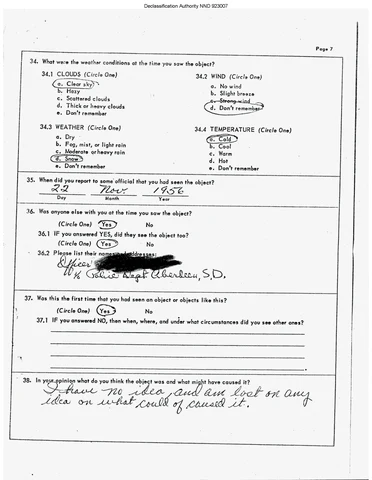 Declassification Authority NND 923007
Page 7
34. What were the weather conditions at the time you saw the object?
34.1 CLOUDS (Circle One)
a. Clear sky
b. Hazy
c. Scattered clouds
d. Thick or heavy clouds
e. Don't remember
34.2 WIND (Circle One)
a. No wind
b. Slight breeze
c. Strong wind
d. Don't remember
34.3 WEATHER (Circle One)
a. Dry
b. Fog, mist, or light rain
c. Moderate or heavy rain
d. Snow
e. Don't remember
34.4 TEMPERATURE (Circle One)
a. Cold
b. Cool
c. Warm
d. Hot
e. Don't remember
35. When did you report to some official that you had seen the object?
22 Nov. 1956
Day Month Year
36. Was anyone else with you at the time you saw the object?
(Circle One) Yes No
36.1 IF you answered YES, did they see the object too?
(Circle One) Yes No
36.2 Please list their names addresses:
Officer
% Police Dept Aberdeen, S.D.
37. Was this the first time that you had seen an object or objects like this?
(Circle One) Yes No
37.1 IF you answered NO, then when, where, and under what circumstances did you see other ones?
38. In your opinion what do you think the object was and what might have caused it?
I have no idea, and am lost on any
idea on what could of caused it.